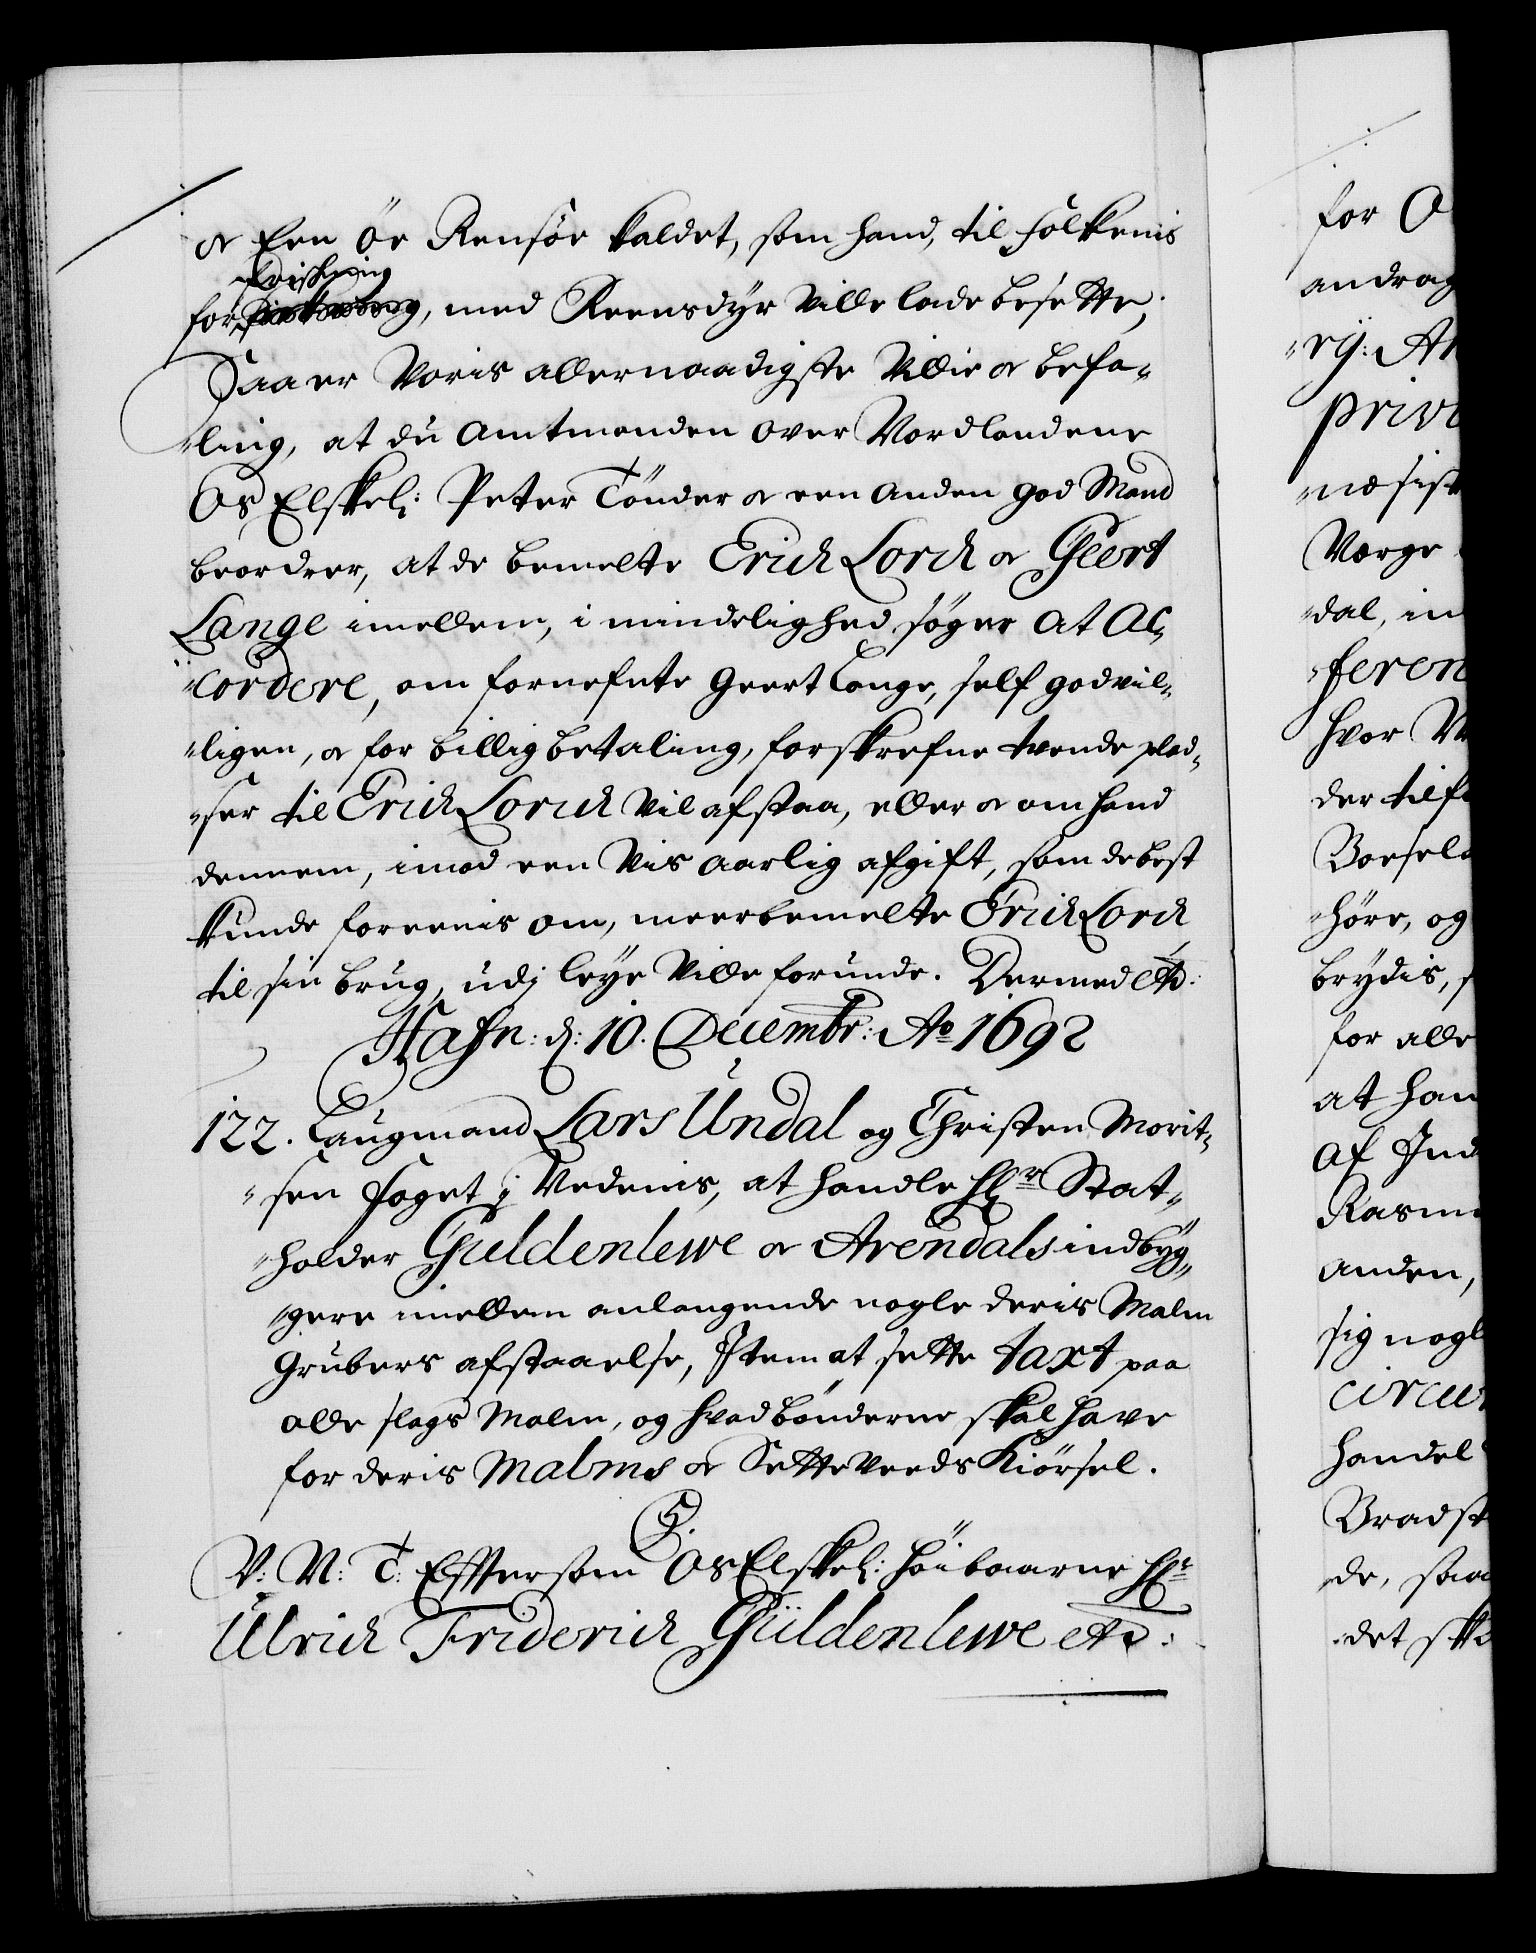 oc Een Öe Rensöe kaldet, som hand, til folkenis
friskning
for, med Reensdyr Ville lade besette,
Saa er Voris allernaadigste Villie oc befa-
-ling, at du Amtmanden over Nordlandene
Os Elskel: Peter Tönder oc een anden god Mand
beordrer, at de bemelte Erich Lorch oc Geert
Lange imellem, i mindelighed söger at Ac-
-cordere, om fornefnte Geert Lange, self godvil-
-ligen, oc for billig betaling, forskrefne tvende plad-
-ser til Erich Lorch Vil afstaa, eller oc om hand
dennem, imod een Vis aarlig afgift, som de best
kunde foreenis om, meerbemelte Erich Lorch
til sin brug, udj leye Ville forunde. Dermed etc:
Hafn: d: 10. Decembr: Ao 1692
122. Laugmand Lars Undal og Christen Morit-
-sen foget j Nedenis, at handle Hr Stat-
-holder Güldenlewe oc Arendals indbyg-
-gere imellem anlangende nogle deris Malm
Grubers afstaaelse, Item at sette taxt paa
alle slags Malm, og hvad bönderne skal have
for deris Malms oc Setteveeds Kiörsel.
C5.
V: N: T: Effter som Os Elskel: höibaarne Hr
Ulrich Friderich Güldenlewe etc:
for O
andrag
-rij: An
privi
-nesist
Værge
-dal, in
-feren
hvor V
der tilf
Boesel
-höre, og
brydis, s
for alle
at han
af Ind
Rasm
anden,
sig nogl
circu
handel
Bradst
de, saa
det ska